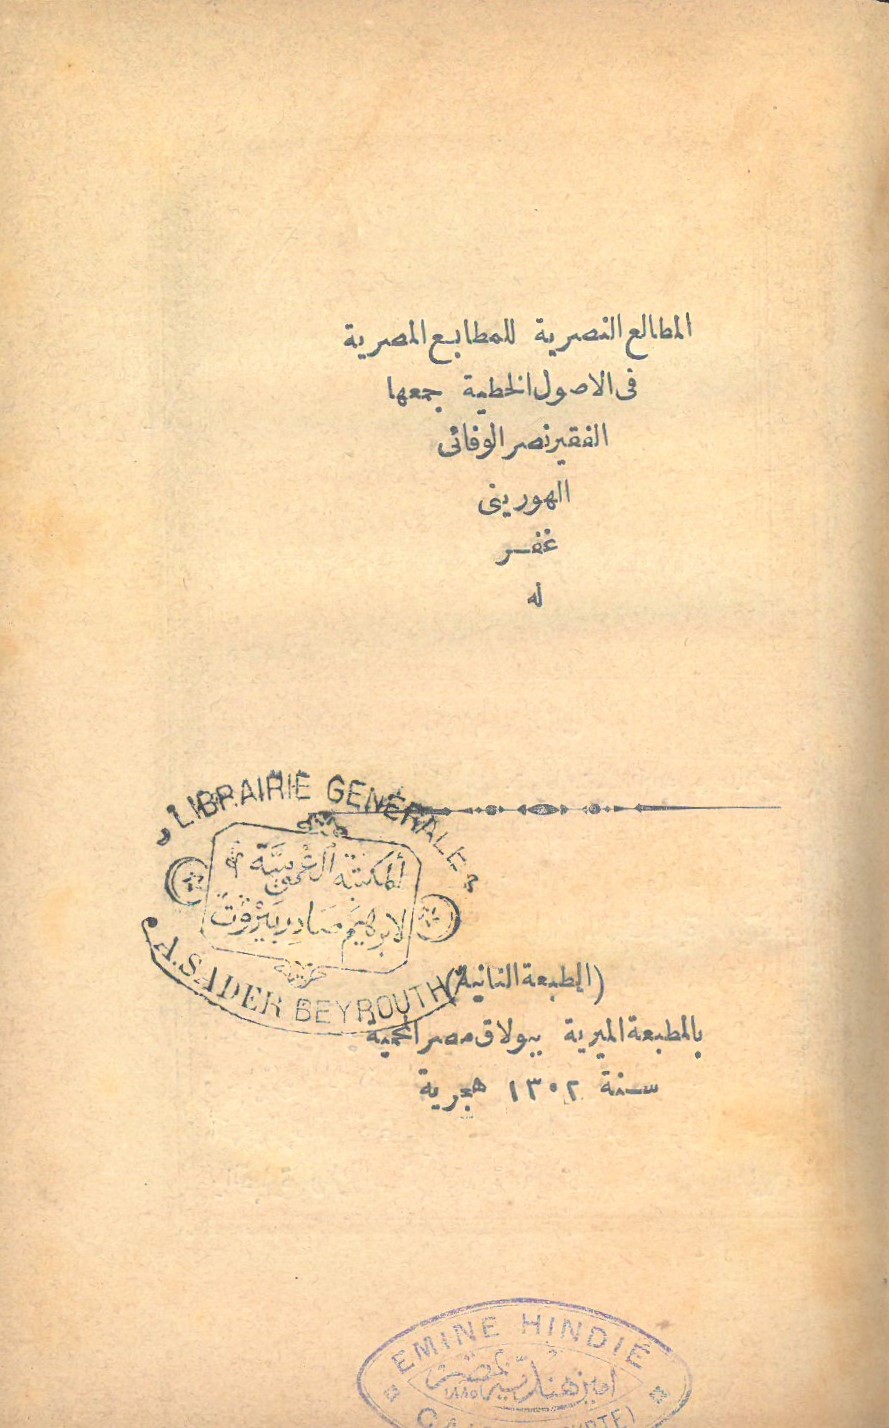 المطالع النصرية للمطابع المصرية
فى الاصول الخطية جمعها
الفقير نصر الوفائى
الهورينى
غفر
له
LIBRAIRIE GENÉRALE
المكتبة العمومية
لابراهيم صادر بيروت
A. SADER BEYROUTH
(الطبعة الثانية)
بالمطبعة الميرية ببولاق مصر المحمية
سنة ١٣٠٢ هجرية
EMINE HINDIÉ
امين هندية بمصر